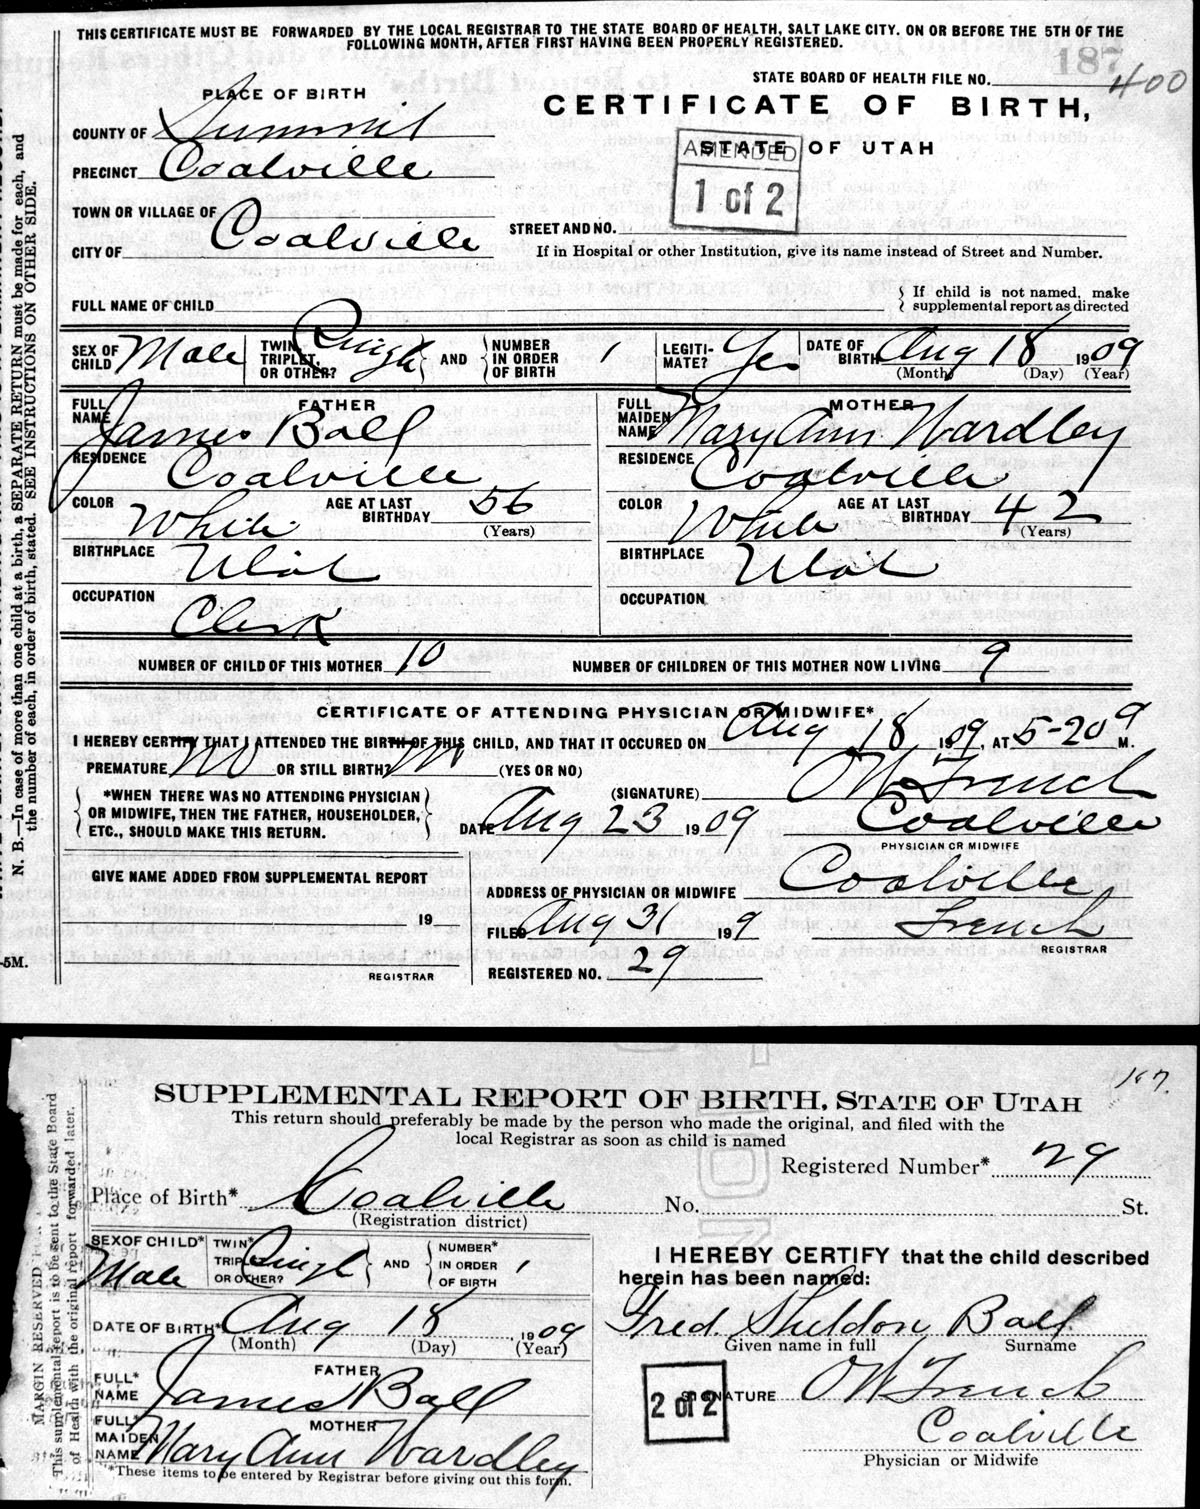 THIS CERTIFICATE MUST BE FORWARDED BY THE LOCAL REGISTRAR TO THE STATE BOARD OF HEALTH, SALT LAKE CITY. ON OR BEFORE THE 5TH OF THE
FOLLOWING MONTH, AFTER FIRST HAVING BEEN PROPERLY REGISTERED.
187
STATE BOARD OF HEALTH FILE NO. 400
PLACE OF BIRTH
CERTIFICATE OF BIRTH,
STATE OF UTAH
AMENDED
1 of 2
COUNTY OF Summit
PRECINCT Coalville
TOWN OR VILLAGE OF
CITY OF Coalville
STREET AND NO.
If in Hospital or other Institution, give its name instead of Street and Number.
FULL NAME OF CHILD
{ If child is not named, make
supplemental report as directed
SEX OF CHILD Male
TWIN, TRIPLET, OR OTHER? Single } AND { NUMBER IN ORDER OF BIRTH 1
LEGITIMATE? Yes
DATE OF BIRTH Aug 18 1909
(Month) (Day) (Year)
FATHER
FULL NAME James Ball
RESIDENCE Coalville
COLOR White AGE AT LAST BIRTHDAY 56
(Years)
BIRTHPLACE Utah
OCCUPATION Clerk
MOTHER
FULL MAIDEN NAME Mary Ann Wardley
RESIDENCE Coalville
COLOR White AGE AT LAST BIRTHDAY 42
(Years)
BIRTHPLACE Utah
OCCUPATION
NUMBER OF CHILD OF THIS MOTHER 10 NUMBER OF CHILDREN OF THIS MOTHER NOW LIVING 9
CERTIFICATE OF ATTENDING PHYSICIAN OR MIDWIFE*
I HEREBY CERTIFY THAT I ATTENDED THE BIRTH OF THIS CHILD, AND THAT IT OCCURED ON Aug 18 1909, AT 5-20 M.
PREMATURE No OR STILL BIRTH? No (YES OR NO)
(SIGNATURE) O W French
*WHEN THERE WAS NO ATTENDING PHYSICIAN
OR MIDWIFE, THEN THE FATHER, HOUSEHOLDER,
ETC., SHOULD MAKE THIS RETURN.
DATE Aug 23 1909 Coalville
PHYSICIAN OR MIDWIFE
GIVE NAME ADDED FROM SUPPLEMENTAL REPORT
19
REGISTRAR
ADDRESS OF PHYSICIAN OR MIDWIFE Coalville
FILED Aug 31 199 French
REGISTRAR
REGISTERED NO. 29
N. B.—In case of more than one child at a birth, a SEPARATE RETURN must be made for each, and
the number of each, in order of birth, stated. SEE INSTRUCTIONS ON OTHER SIDE.
-5M.
187.
SUPPLEMENTAL REPORT OF BIRTH, STATE OF UTAH
This return should preferably be made by the person who made the original, and filed with the
local Registrar as soon as child is named
Registered Number* 29
Place of Birth* Coalville No. St.
(Registration district)
SEX OF CHILD* Male
TWIN* TRIPLET OR OTHER? Single } AND { NUMBER* IN ORDER OF BIRTH 1
DATE OF BIRTH* Aug 18, 1909
(Month) (Day) (Year)
FATHER
FULL* NAME James Ball
MOTHER
FULL* MAIDEN NAME Mary Ann Wardley
*These items to be entered by Registrar before giving out this form.
I HEREBY CERTIFY that the child described
herein has been named:
Fred. Sheldon Ball
Given name in full Surname
2 of 2
SIGNATURE O W French
Coalville
Physician or Midwife
MARGIN RESERVED
This supplemental report is to be sent to the State Board
of Health with the original report forwarded later.